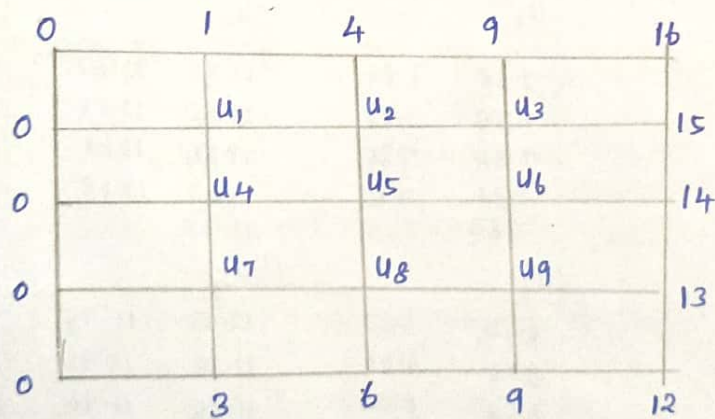 0 1 4 9 16
0 u₁ u₂ u₃ 15
0 u₄ u₅ u₆ 14
0 u₇ u₈ u₉ 13
0 3 6 9 12